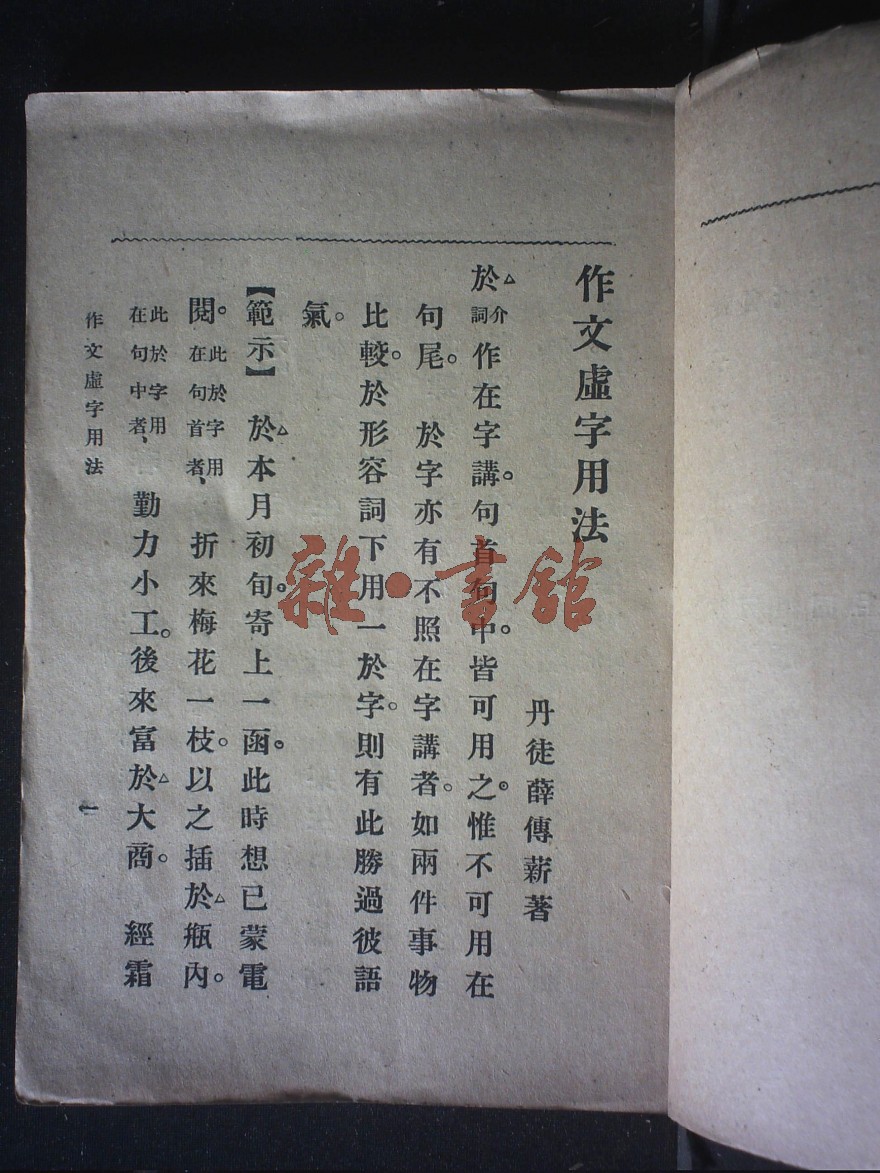 作文虛字用法
丹徒薛傳薪著
於△介詞作在字講。句首句中。皆可用之。惟不可用在
句尾。 於字亦有不照在字講者。如兩件事物
比較。於形容詞下用一於字。則有此勝過彼語
氣。
【範示】 於△本月初旬。寄上一函。此時想已蒙電
閱。此於字用在句首者、 折來梅花一枝。以之插於△瓶內。
此於字用在句中者、 勤力小工。後來富於△大商。 經霜
作文虛字用法
一
雜·書館